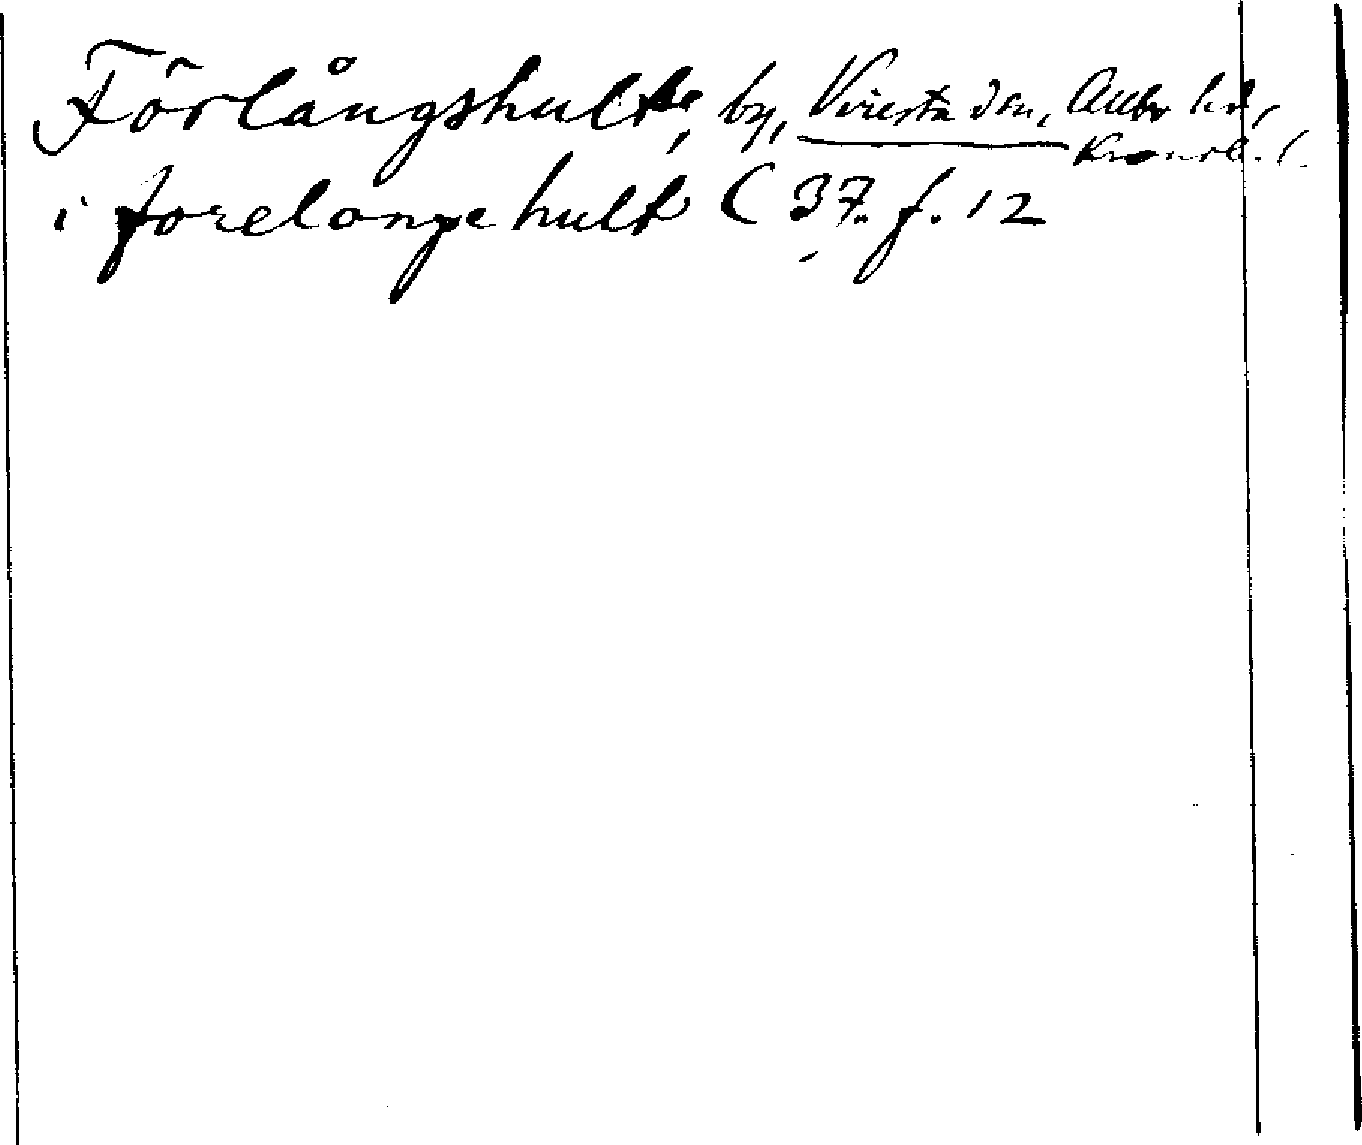 Förlångshult, by, Virestads sn, Allbo hd,
Kronob. l.
i forelonge hult C 37. f. 12